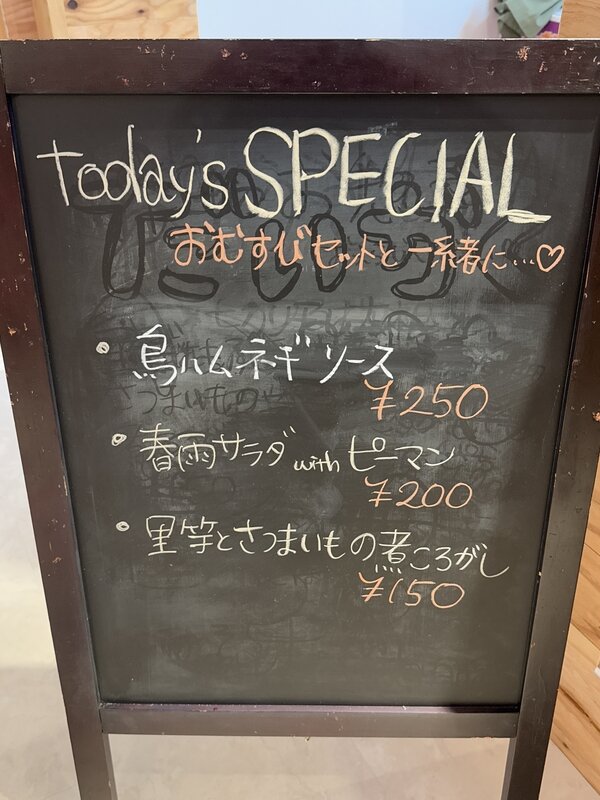 today's SPECIAL
おむすびセットと一緒に…♡
・鳥ハムネギソース
¥250
・春雨サラダ with ピーマン
¥200
・里芋とさつまいもの煮ころがし
¥150